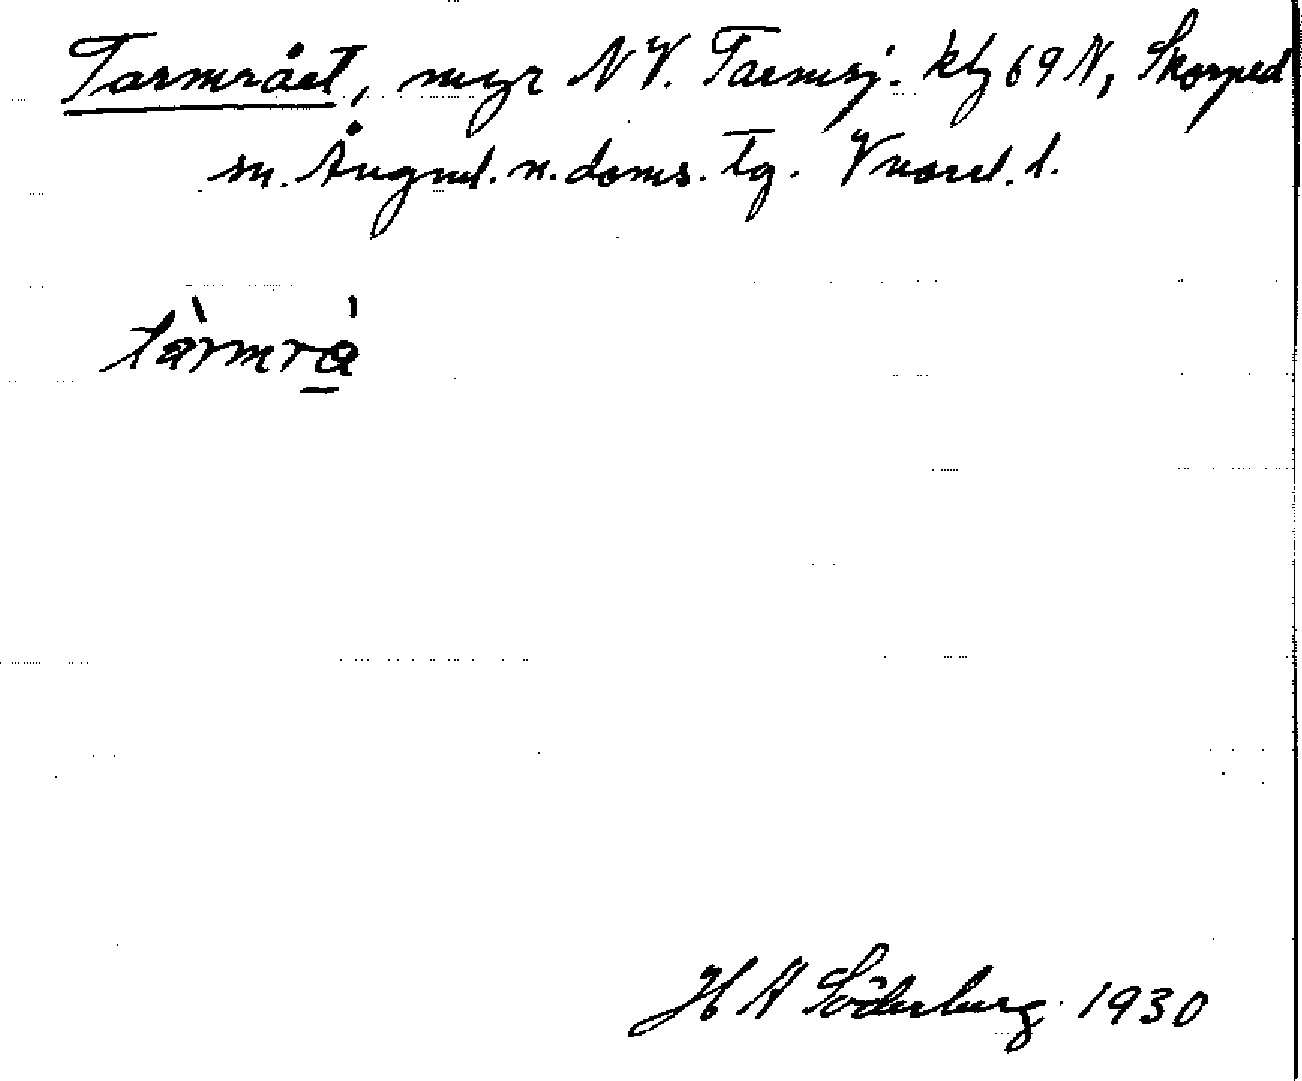 Tarmrået, myr NV. Tarmsj. kb 69 N, Skorped
sn. Ångml. n. doms. tg. Vnorrl. l.
tàrmrá
H A Söderberg 1930